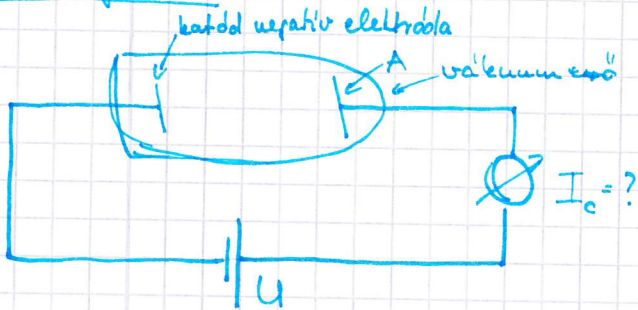 katód negatív elektróda
A
vákuum cső
I_c = ?
U